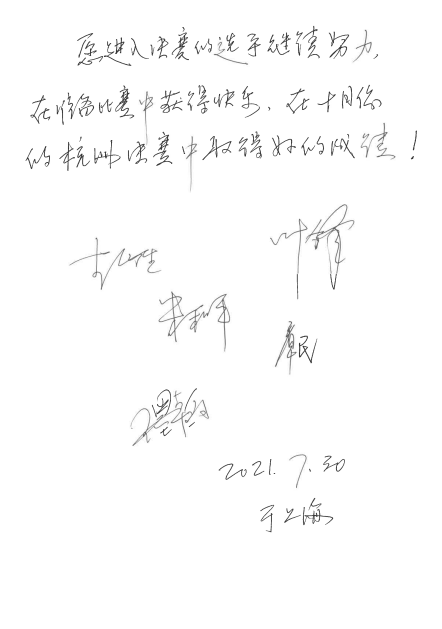 愿进入决赛的选手继续努力,
在准备比赛中获得快乐,在十月份
的杭州决赛中取得好的成绩!
叶锋
朱和平
詹民
2021.7.30
于上海